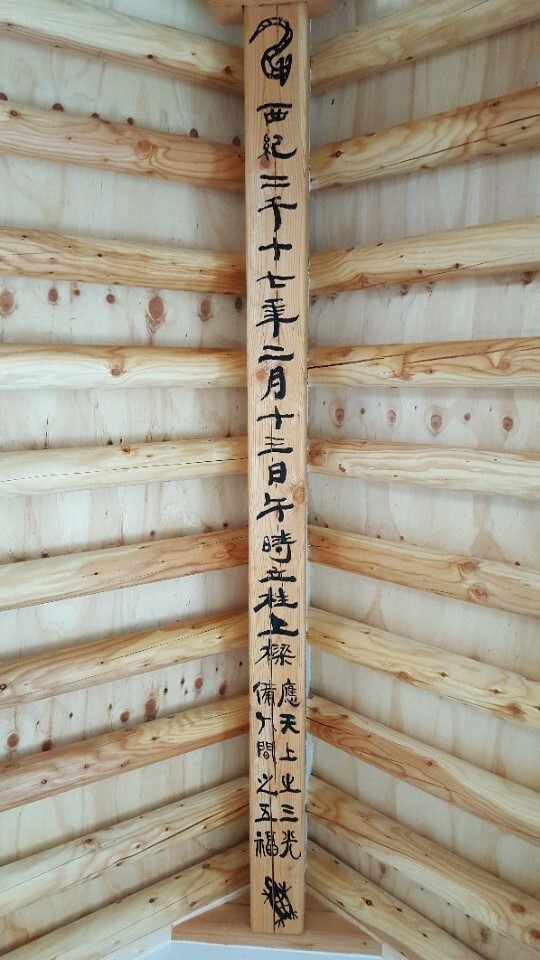 西紀二千十七年二月十三日午時立柱上樑
應天上之三光
備人間之五福